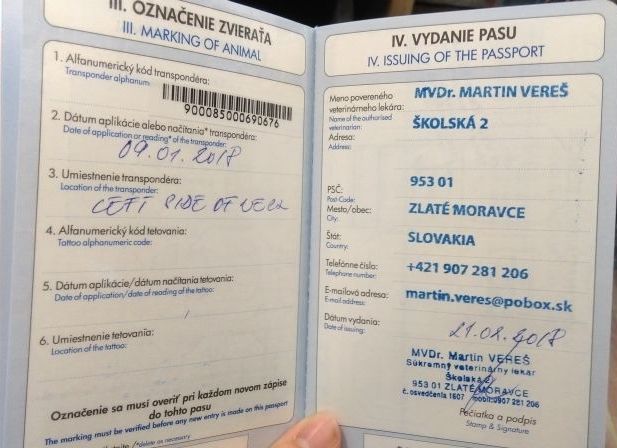 III. OZNAČENIE ZVIERAŤA
III. MARKING OF ANIMAL
1. Alfanumerický kód transpondéra:
Transponder alphanum:
900085000690676
2. Dátum aplikácie alebo načítania* transpondéra:
Date of application or reading* of the transponder:
09.01.2018
3. Umiestnenie transpondéra:
Location of the transponder:
LEFT SIDE OF NECK
4. Alfanumerický kód tetovania:
Tattoo alphanumeric code:
5. Dátum aplikácie/dátum načítania tetovania:
Date of application/date of reading of the tattoo:
6. Umiestnenie tetovania:
Location of the tattoo:
Označenie sa musí overiť pri každom novom zápise
do tohto pasu
The marking must be verified before any new entry is made on this passport
*delete as necessary
IV. VYDANIE PASU
IV. ISSUING OF THE PASSPORT
Meno povereného
veterinárneho lekára:
MVDr. MARTIN VEREŠ
Name of the authorised
veterinarian:
Adresa:
ŠKOLSKÁ 2
Address:
PSČ:
953 01
Post-Code:
Mesto/obec:
ZLATÉ MORAVCE
City:
Štát:
SLOVAKIA
Country:
Telefónne číslo:
+421 907 281 206
Telephone number:
E-mailová adresa:
martin.veres@pobox.sk
E-mail address:
Dátum vydania:
Date of issuing:
21.02.2018
MVDr. Martin VEREŠ
Súkromný veterinárny lekár
Školská 2
953 01 ZLATÉ MORAVCE
č. osvedčenia 1607 mobil:0907 281 206
Pečiatka a podpis
Stamp & Signature